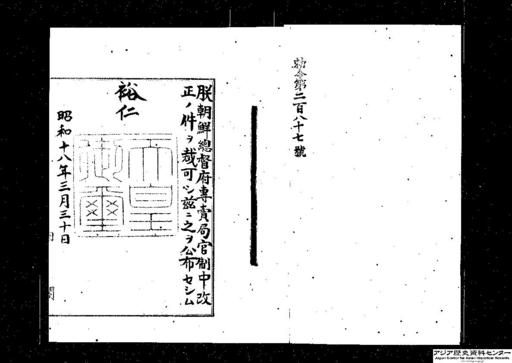 勅令第二百八十七號
朕朝鮮總督府專賣局官制中改
正ノ件ヲ裁可シ茲ニ之ヲ公布セシム
裕仁
天皇御璽
昭和十八年三月三十日
アジア歴史資料センター
Japan Center for Asian Historical Records